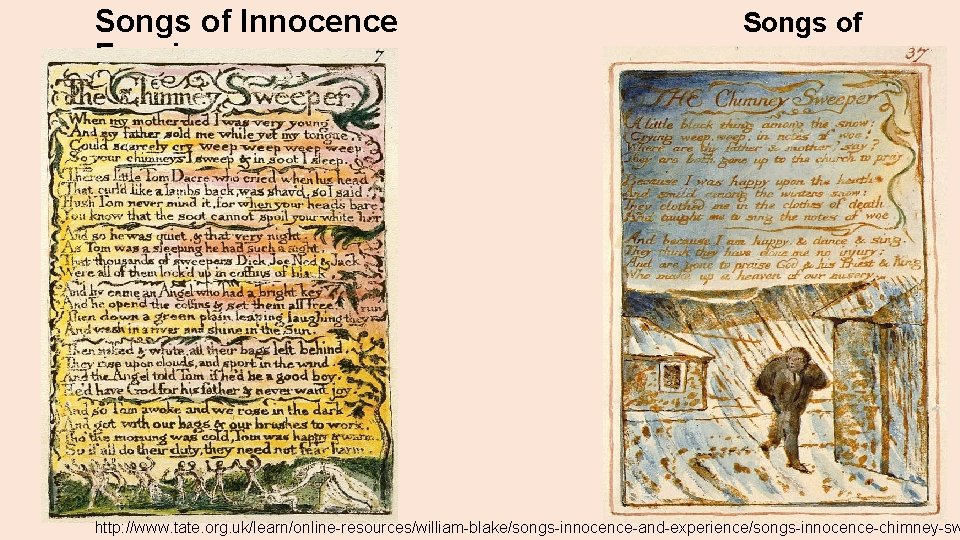 Songs of Innocence
Songs of
7
The Chimney Sweeper
When my mother died I was very young
And my father sold me while yet my tongue,
Could scarcely cry weep weep weep weep
So your chimneys I sweep & in soot I sleep.
Theres little Tom Dacre who cried when his head
That curld like a lambs back, was shav'd, so I said
Hush Tom never mind it, for when your heads bare
You know that the soot cannot spoil your white hair
And so he was quiet, & that very night.
As Tom was a sleeping he had such a sight
That thousands of sweepers Dick, Joe Ned & Jack
Were all of them lock'd up in coffins of black
And by came an Angel who had a bright key
And he open'd the coffins & set them all free.
Then down a green plain leaping laughing they run
And wash in a river and shine in the Sun.
Then naked & white, all their bags left behind,
They rise upon clouds, and sport in the wind.
And the Angel told Tom if he'd be a good boy,
He'd have God for his father & never want joy
And so Tom awoke and we rose in the dark
And got with our bags & our brushes to work.
Tho' the morning was cold, Tom was happy & warm.
So if all do their duty, they need not fear harm.
37
THE Chimney Sweeper
A little black thing among the snow:
Crying weep, weep, in notes of woe!
Where are thy father & mother? say?
They are both gone up to the church to pray
Because I was happy upon the heath,
And smil'd among the winters snow:
They clothed me in the clothes of death
And taught me to sing the notes of woe
And because I am happy, & dance & sing.
They think they have done me no injury:
And are gone to praise God & his Priest & King
Who make up a heaven of our misery.
http://www.tate.org.uk/learn/online-resources/william-blake/songs-innocence-and-experience/songs-innocence-chimney-sw